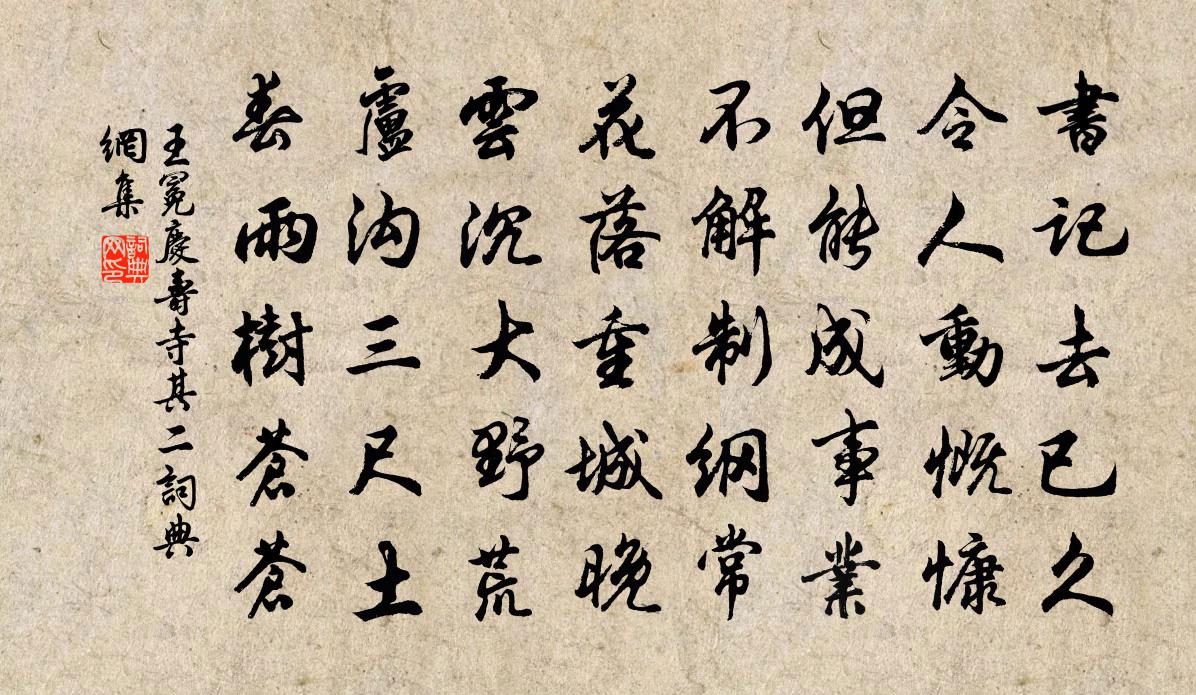 書記去已久
令人動慨慷
但能成事業
不解制綱常
花落重城晚
雲沉大野荒
盧沟三尺土
春雨樹蒼蒼
王冕慶壽寺其二詞典
網集
詞典网印